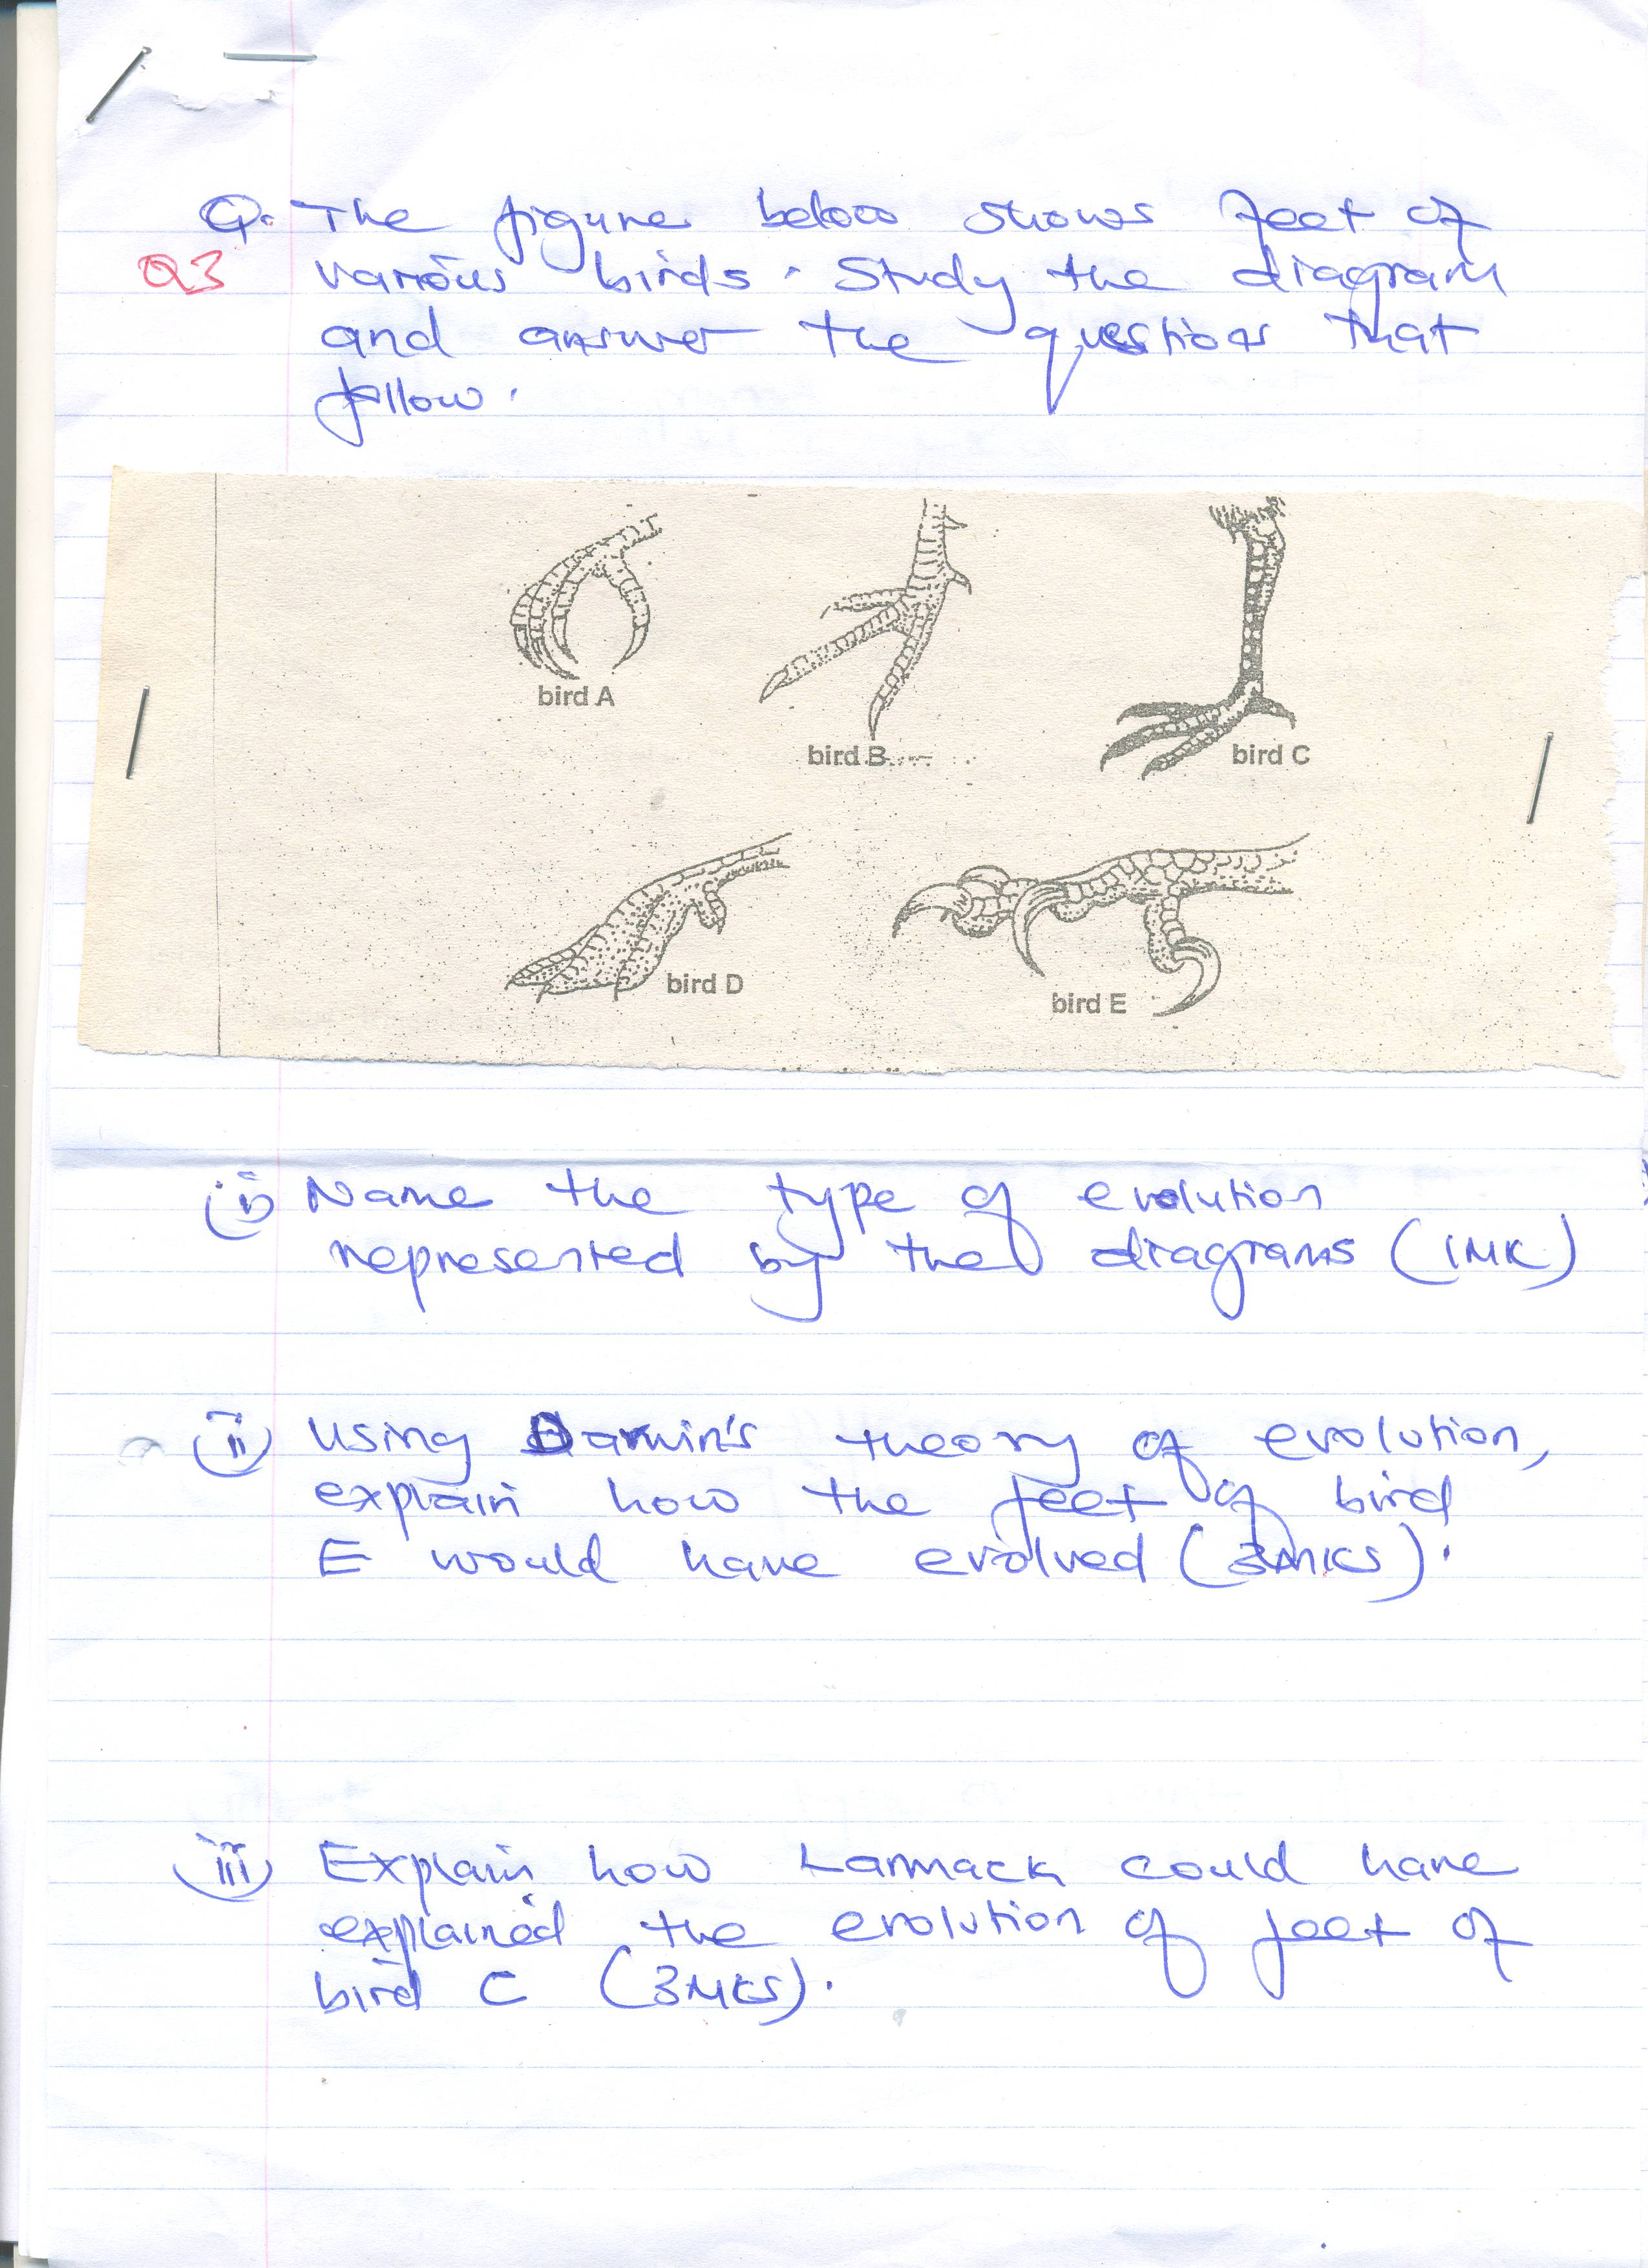 Q. The figure below shows feet of
Q3 various birds. Study the diagram
and answer the questions that
follow.
bird A
bird B
bird C
bird D
bird E
(i) Name the type of evolution
represented by the diagrams (1MK)
(ii) Using Darwin's theory of evolution,
explain how the feet of bird
E would have evolved (3MKS).
(iii) Explain how Larmack could have
explained the evolution of feet of
bird C (3MKS).